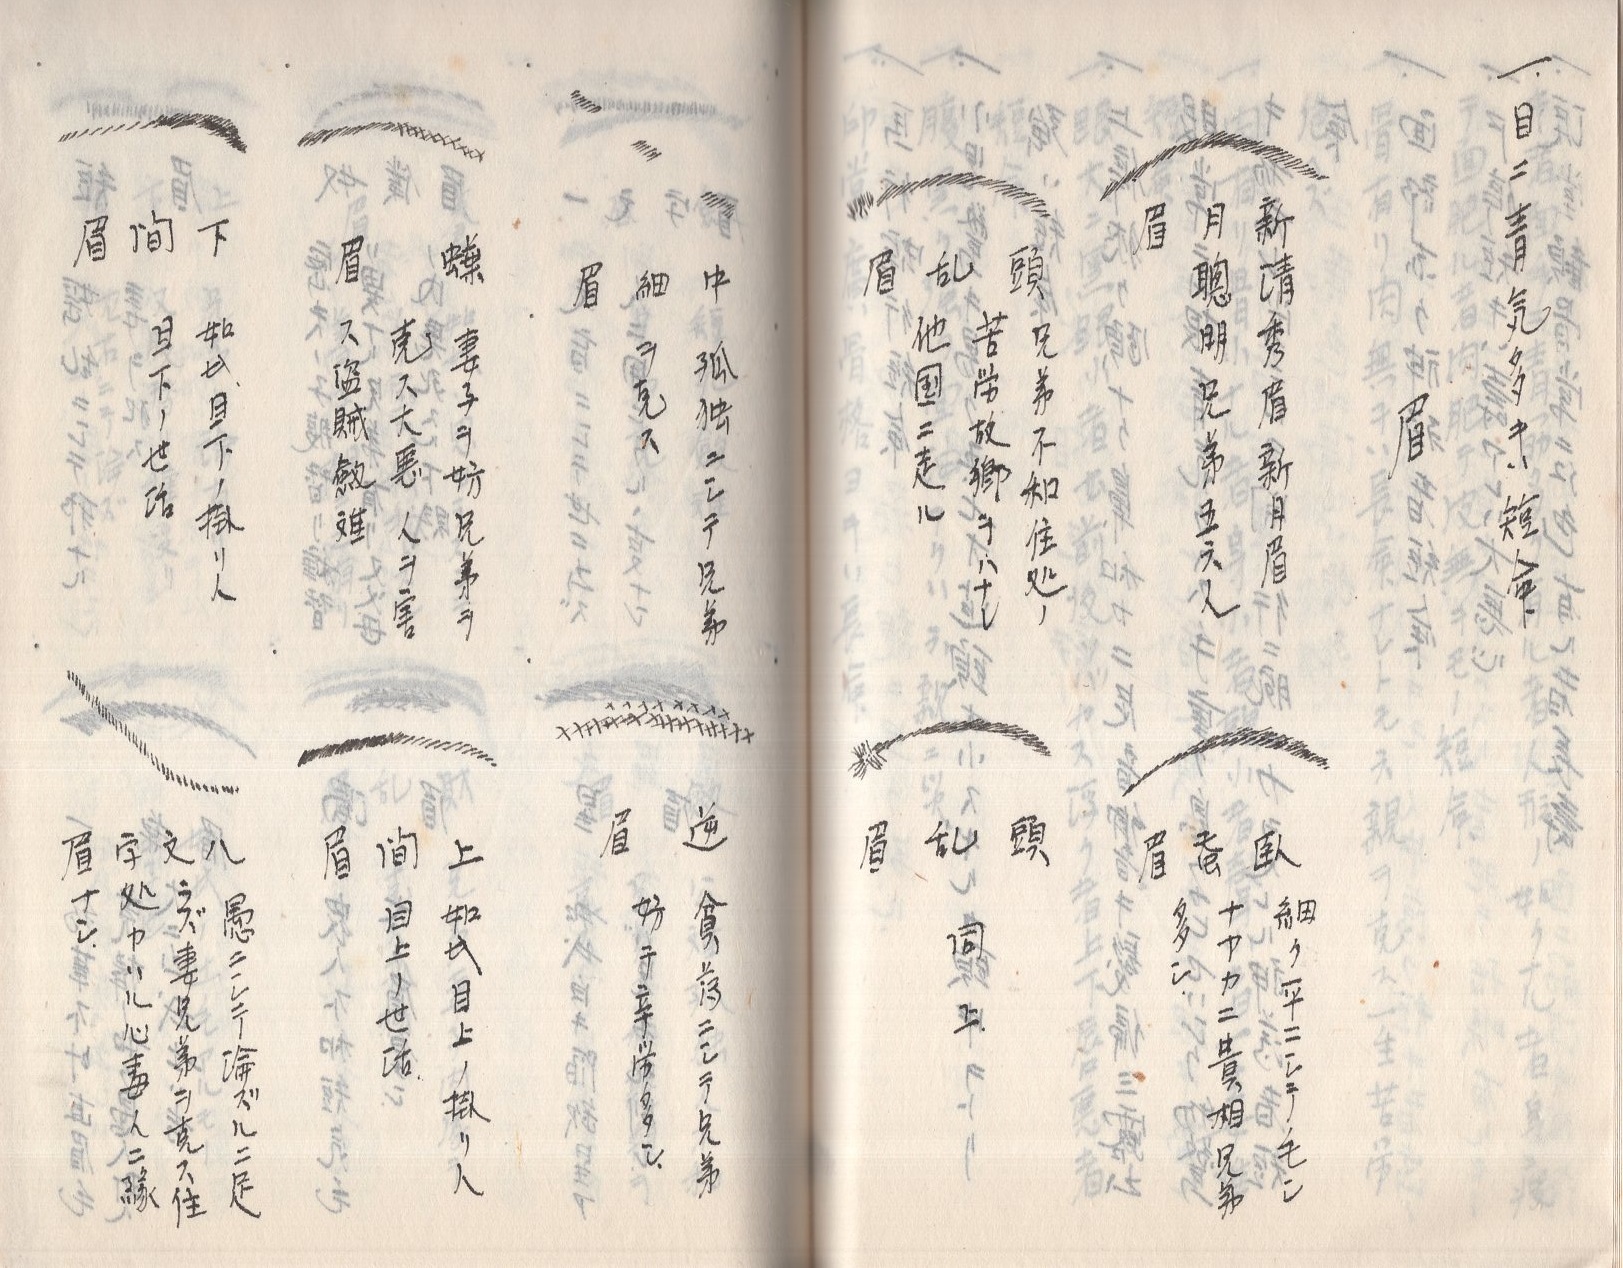 一、目ニ青気多キハ短命
眉
新清秀眉新月眉
月聰明兄弟五六人
眉
頭 兄弟不和住処ノ
乱 苦労故郷ヲハナレ
眉 他国ニ走ル
臥 細ク平ニシテ毛シ
蚕 ナヤカニ貴相兄弟
眉 多シ
頭
乱 同上
眉
中 孤独ニシテ兄弟
細 ヲ克ス
眉
妻子ヲ妨兄弟ヲ
克ス大悪人ヲ害
眉 ス盗賊劔難
下 如此目下ノ掛リ人
間 目下ノ世話
眉
逆 貧落ニシテ兄弟
眉 妨テ辛労多シ
上 如此目上ノ掛リ人
間 目上ノ世話
眉
八 愚ニシテ論ズルニ足
文 ラズ妻兄弟ヲ克ス住
字 処カハル心毒人ニ縁
眉 ナシ